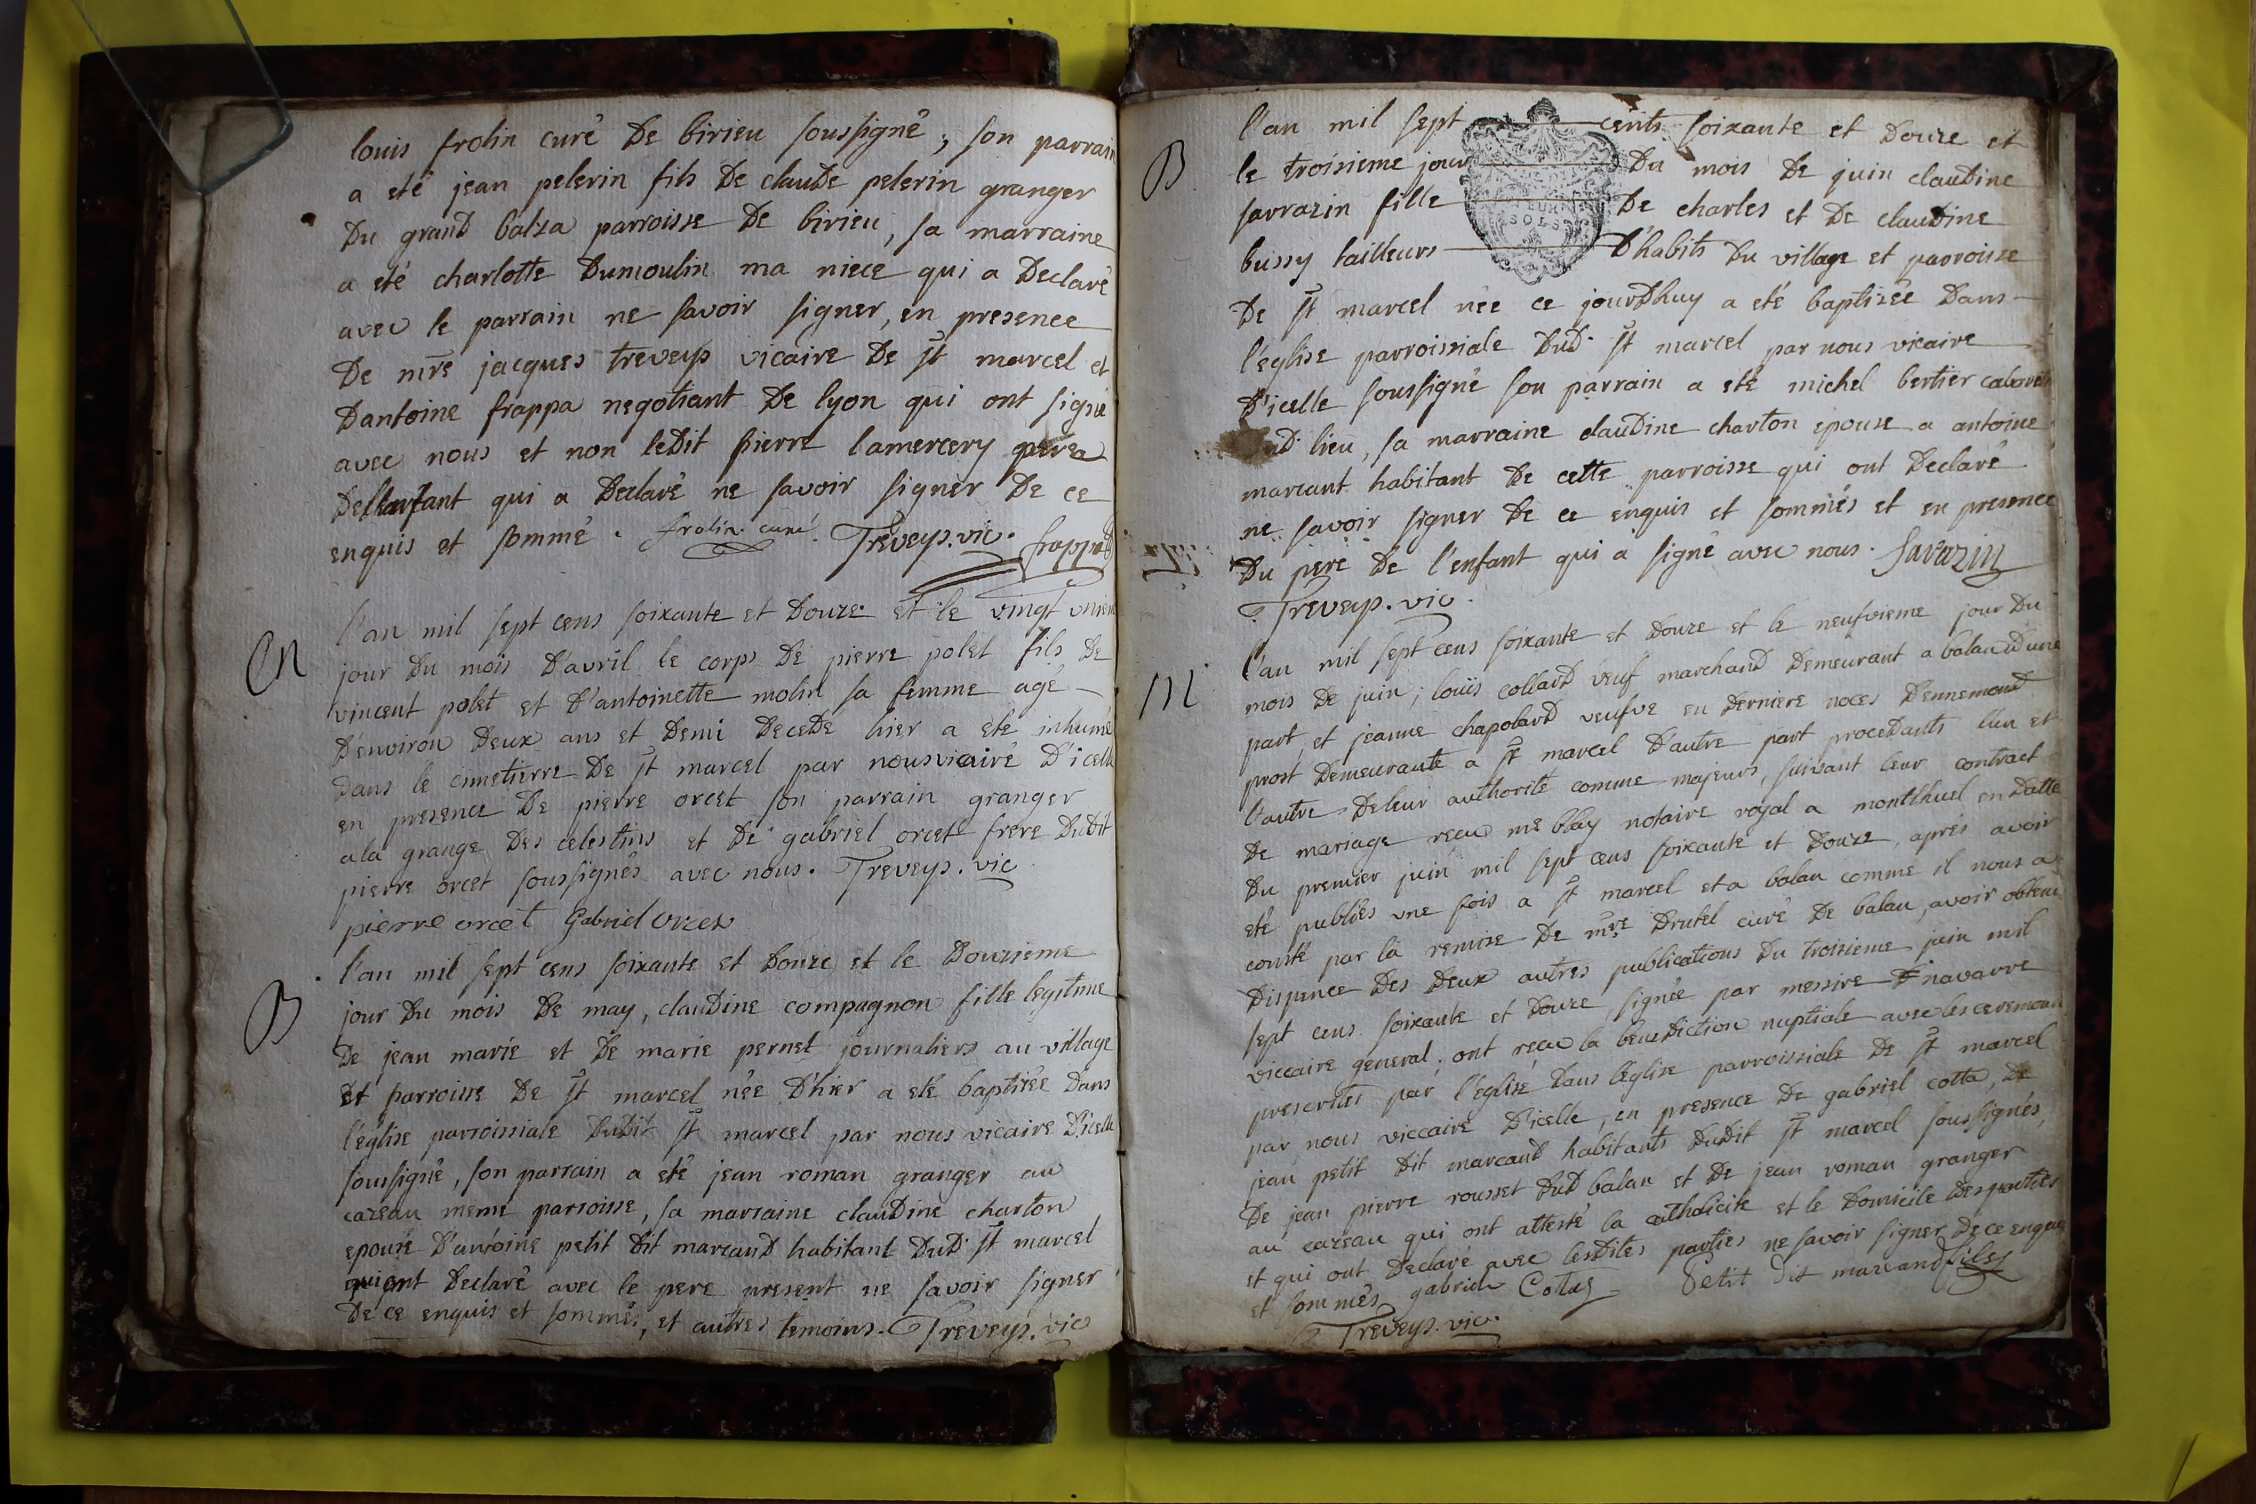 louis frolin curé De birieu soussigné, son parrain
a eté jean pelerin fils De claude pelerin granger
Du grand balza parroisse De birieu, sa marraine
a eté charlotte Dumoulin ma niece qui a Declaré
avec le parrain ne savoir signer, en presence
De mre jacques treveys vicaire De st marcel et
Dantoine frappa negotiant De lyon qui ont signé
avec nous et non ledit pierre lamercery pere
De lenfant qui a Declaré ne savoir signer De ce
enquis et sommé. frolin curé. Treveys. vic. frappa
l'an mil sept cens soixante et Douze et le vingt unieme
jour Du mois D'avril le corps De pierre polet fils De
vincent polet et D'antoinette molin sa femme agé
D'environ Deux ans et Demi Decede hier a eté inhumé
Dans le cimetierre De st marcel par nous vicaire D'icelle
en presence De pierre orcet son parrain granger
a la grange Des celestins et De gabriel orcet frere Dudit
pierre orcet soussignés avec nous. Treveys. vic
pierre orcet Gabriel orcet
En
l'an mil sept cens soixante et Douze et le Douzieme
jour Du mois De may, claudine compagnon fille legitime
De jean marie et De marie pernet journaliers au village
Et parroisse De st marcel née D'hier a eté baptisée Dans
l'eglise parroissiale Dudit st marcel par nous vicaire D'icelle
soussigné, son parrain a eté jean roman granger au
cazeau meme parroisse, sa marraine claudine charton
epouse D'antoine petit Dit marcand habitant Dud. st marcel
qui ont Declaré avec le pere present ne savoir signer
De ce enquis et sommés, et autres temoins. Treveys. vic
B
l'an mil sept cents soixante et Douze et
le troisieme jour Du mois De juin claudine
sarrazin fille De charles et De claudine
bussy tailleurs D'habits Du village et parroisse
De st marcel née ce jourdhuy a eté baptisée Dans
l'eglise parroissiale Dud. st marcel par nous vicaire
D'icelle soussigné son parrain a eté michel bertier
lieu, sa marraine claudine charton epouse a antoine
marcant habitant De cette parroisse qui ont Declaré
ne savoir signer De ce enquis et sommés et en presence
Du pere De l'enfant qui a signé avec nous. Sarazin
Treveys. vic.
B
SOLS
l'an mil sept cens soixante et Douze et le neufvieme jour Du
mois De juin, louis collard veuf marchand Demeurant a balan D'une
part, et jeanne chapolard veufve en Derniere noces Dennemond
prost Demeurante a st marcel D'autre part procedants l'un et
l'autre De leur authorité comme majeurs, suivant leur contract
De mariage recu me blay notaire royal a montluel en Datte
Du premier juin mil sept cens soixante et Douze, aprés avoir
eté publiés une fois a st marcel et a balan comme il nous a
consté par la remise De mre Drutel curé De balan, avoir obtenu
Dispence Des Deux autres publications Du troisieme juin mil
sept cens soixante et Douze, signée par messire De navarre
viccaire general; ont recu la benediction nuptiale avec les ceremonies
prescrites par l'eglise Dans l'eglise parroissiale De st marcel
par nous viccaire D'icelle, en presence De gabriel cotta, De
jean petit Dit marcand habitants Dudit st marcel soussignés,
De jean pierre rousset Dud balan et De jean roman granger
au cazeau qui ont attesté la catholicité et le Domicile Des parties
et qui ont Declaré avec lesdites parties ne savoir signer De ce enquis
et sommés gabriel Cotta Petit Dit marcand fils
Treveys. vic.
M